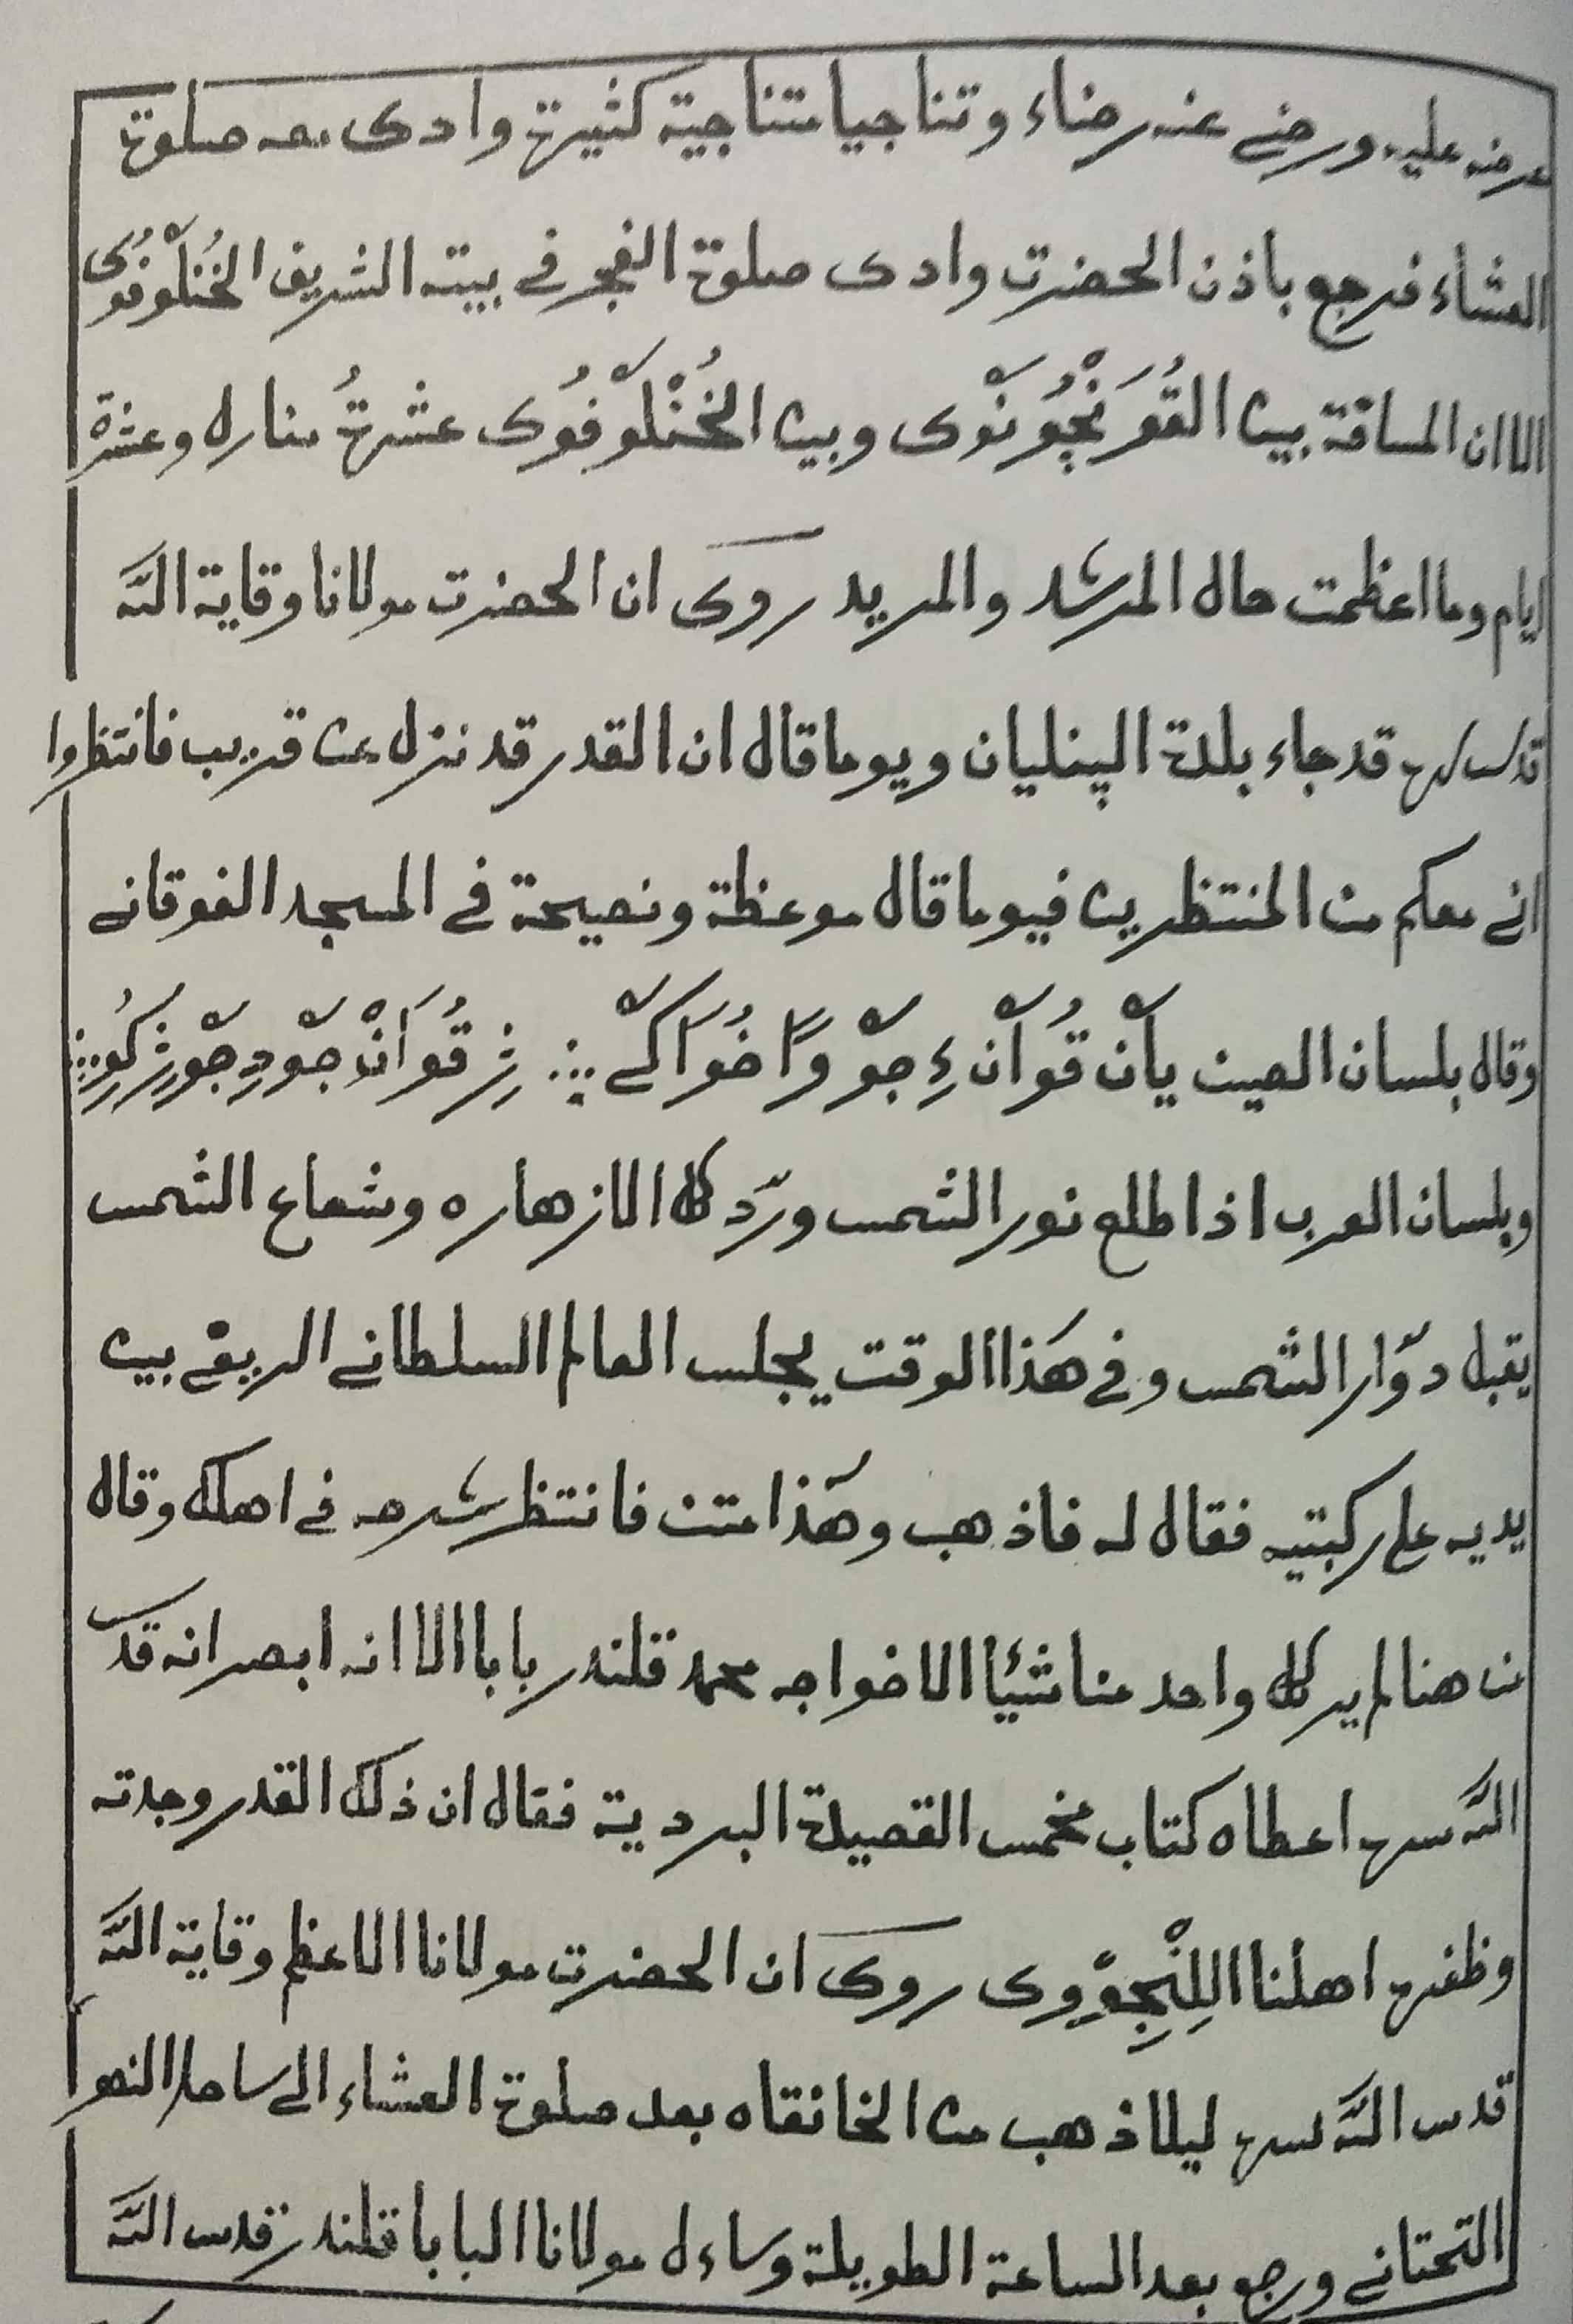 عرضه عليه ورضي عنه رضاء وتناجيا متناجية كثيرة وادى معه صلوة
العشاء فرجع باذن الحضرت وادى صلوة الفجر في بيته الشريف الخُنْلَوْفُوى
الا ان المسافة بين القُوَنْچُوَنْوى وبين الخُنْلَوْفُوى عشرةُ منازل وعشرة
ايام وما اعظمت حال المرشد والمريد روى ان الحضرت مولانا وقاية الله
قدس سره قد جاء بلدة الپنليان ويوما قال ان القدر قد نزل عن قريب فانتظروا
اني معكم من المنتظرين فيوما قال موعظة ونصيحة في المسجد الفوقاني
وقال بلسان الصين
وبلسان العرب اذا طلع نور الشمس ورّد كل الازهاره وشعاع الشمس
يقبل دوّار الشمس وفي هٰذا الوقت يجلس العالم السلطاني بين
يديه على ركبتيه فقال له فاذهب وهٰذا متن فانتظر شرحه في اهلك وقال
من هنا لم ير كل واحد منا شيئا الا خواجه محمد قلندر بابا الا انه ابصر انه قدس
الله سره اعطاه كتاب مخمس القصيدة البردية فقال ان ذلك القدر وجدته
وظفره اهلنا روى ان الحضرت مولانا الاعظم وقاية الله
قدس الله سره ليلا ذهب من الخانقاه بعد صلوة العشاء الى ساحل النهر
التحتاني ورجع بعد الساعة الطويلة وساءل مولانا البابا قلندر قدس الله